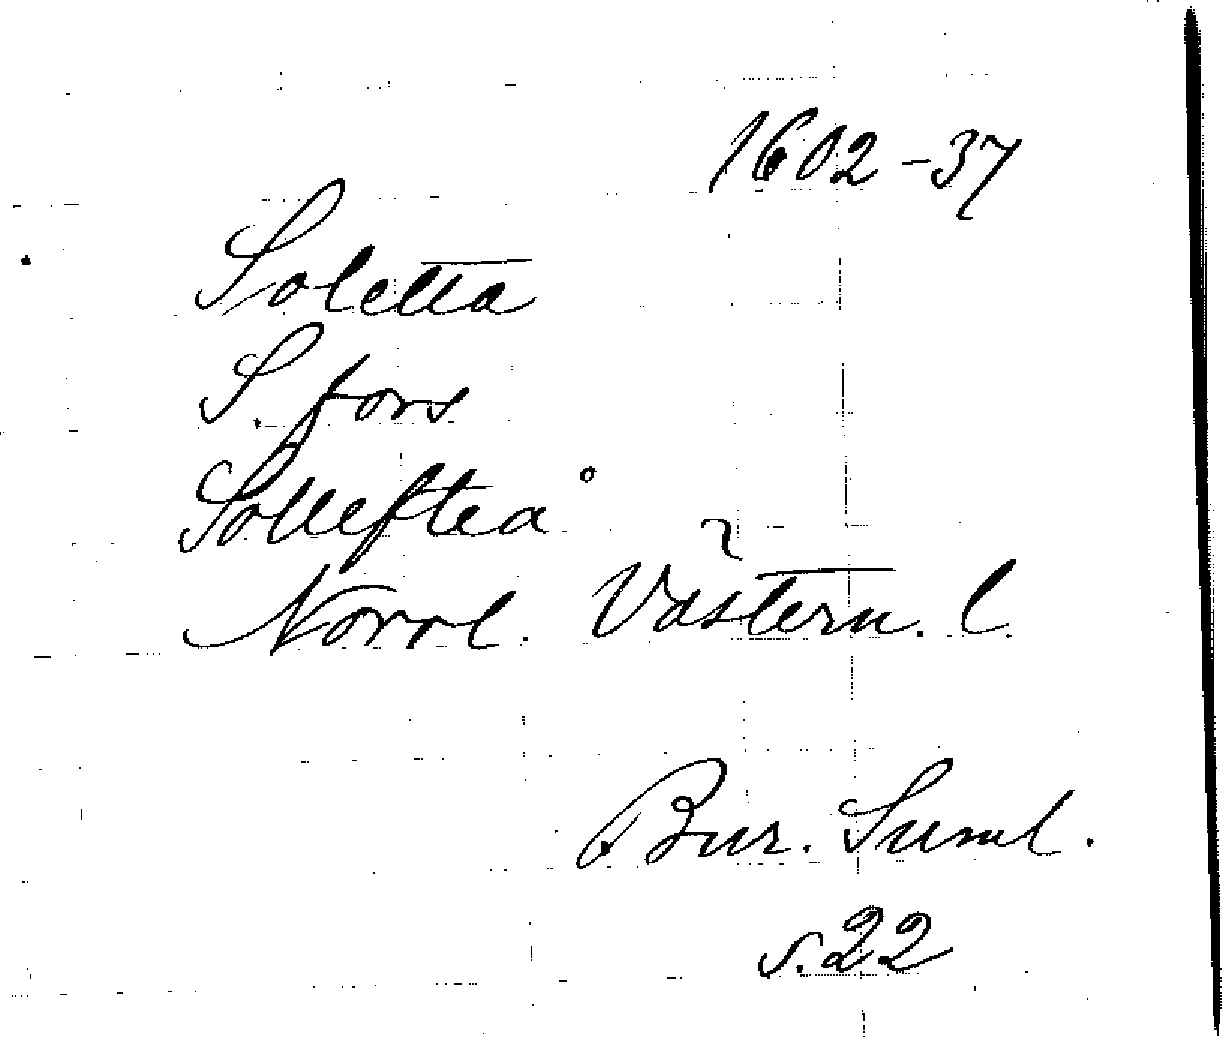 1602-37
Soletta
S. fors
Sollefteå
Norrl. Västern. l.
Bur. Suml.
s. 22